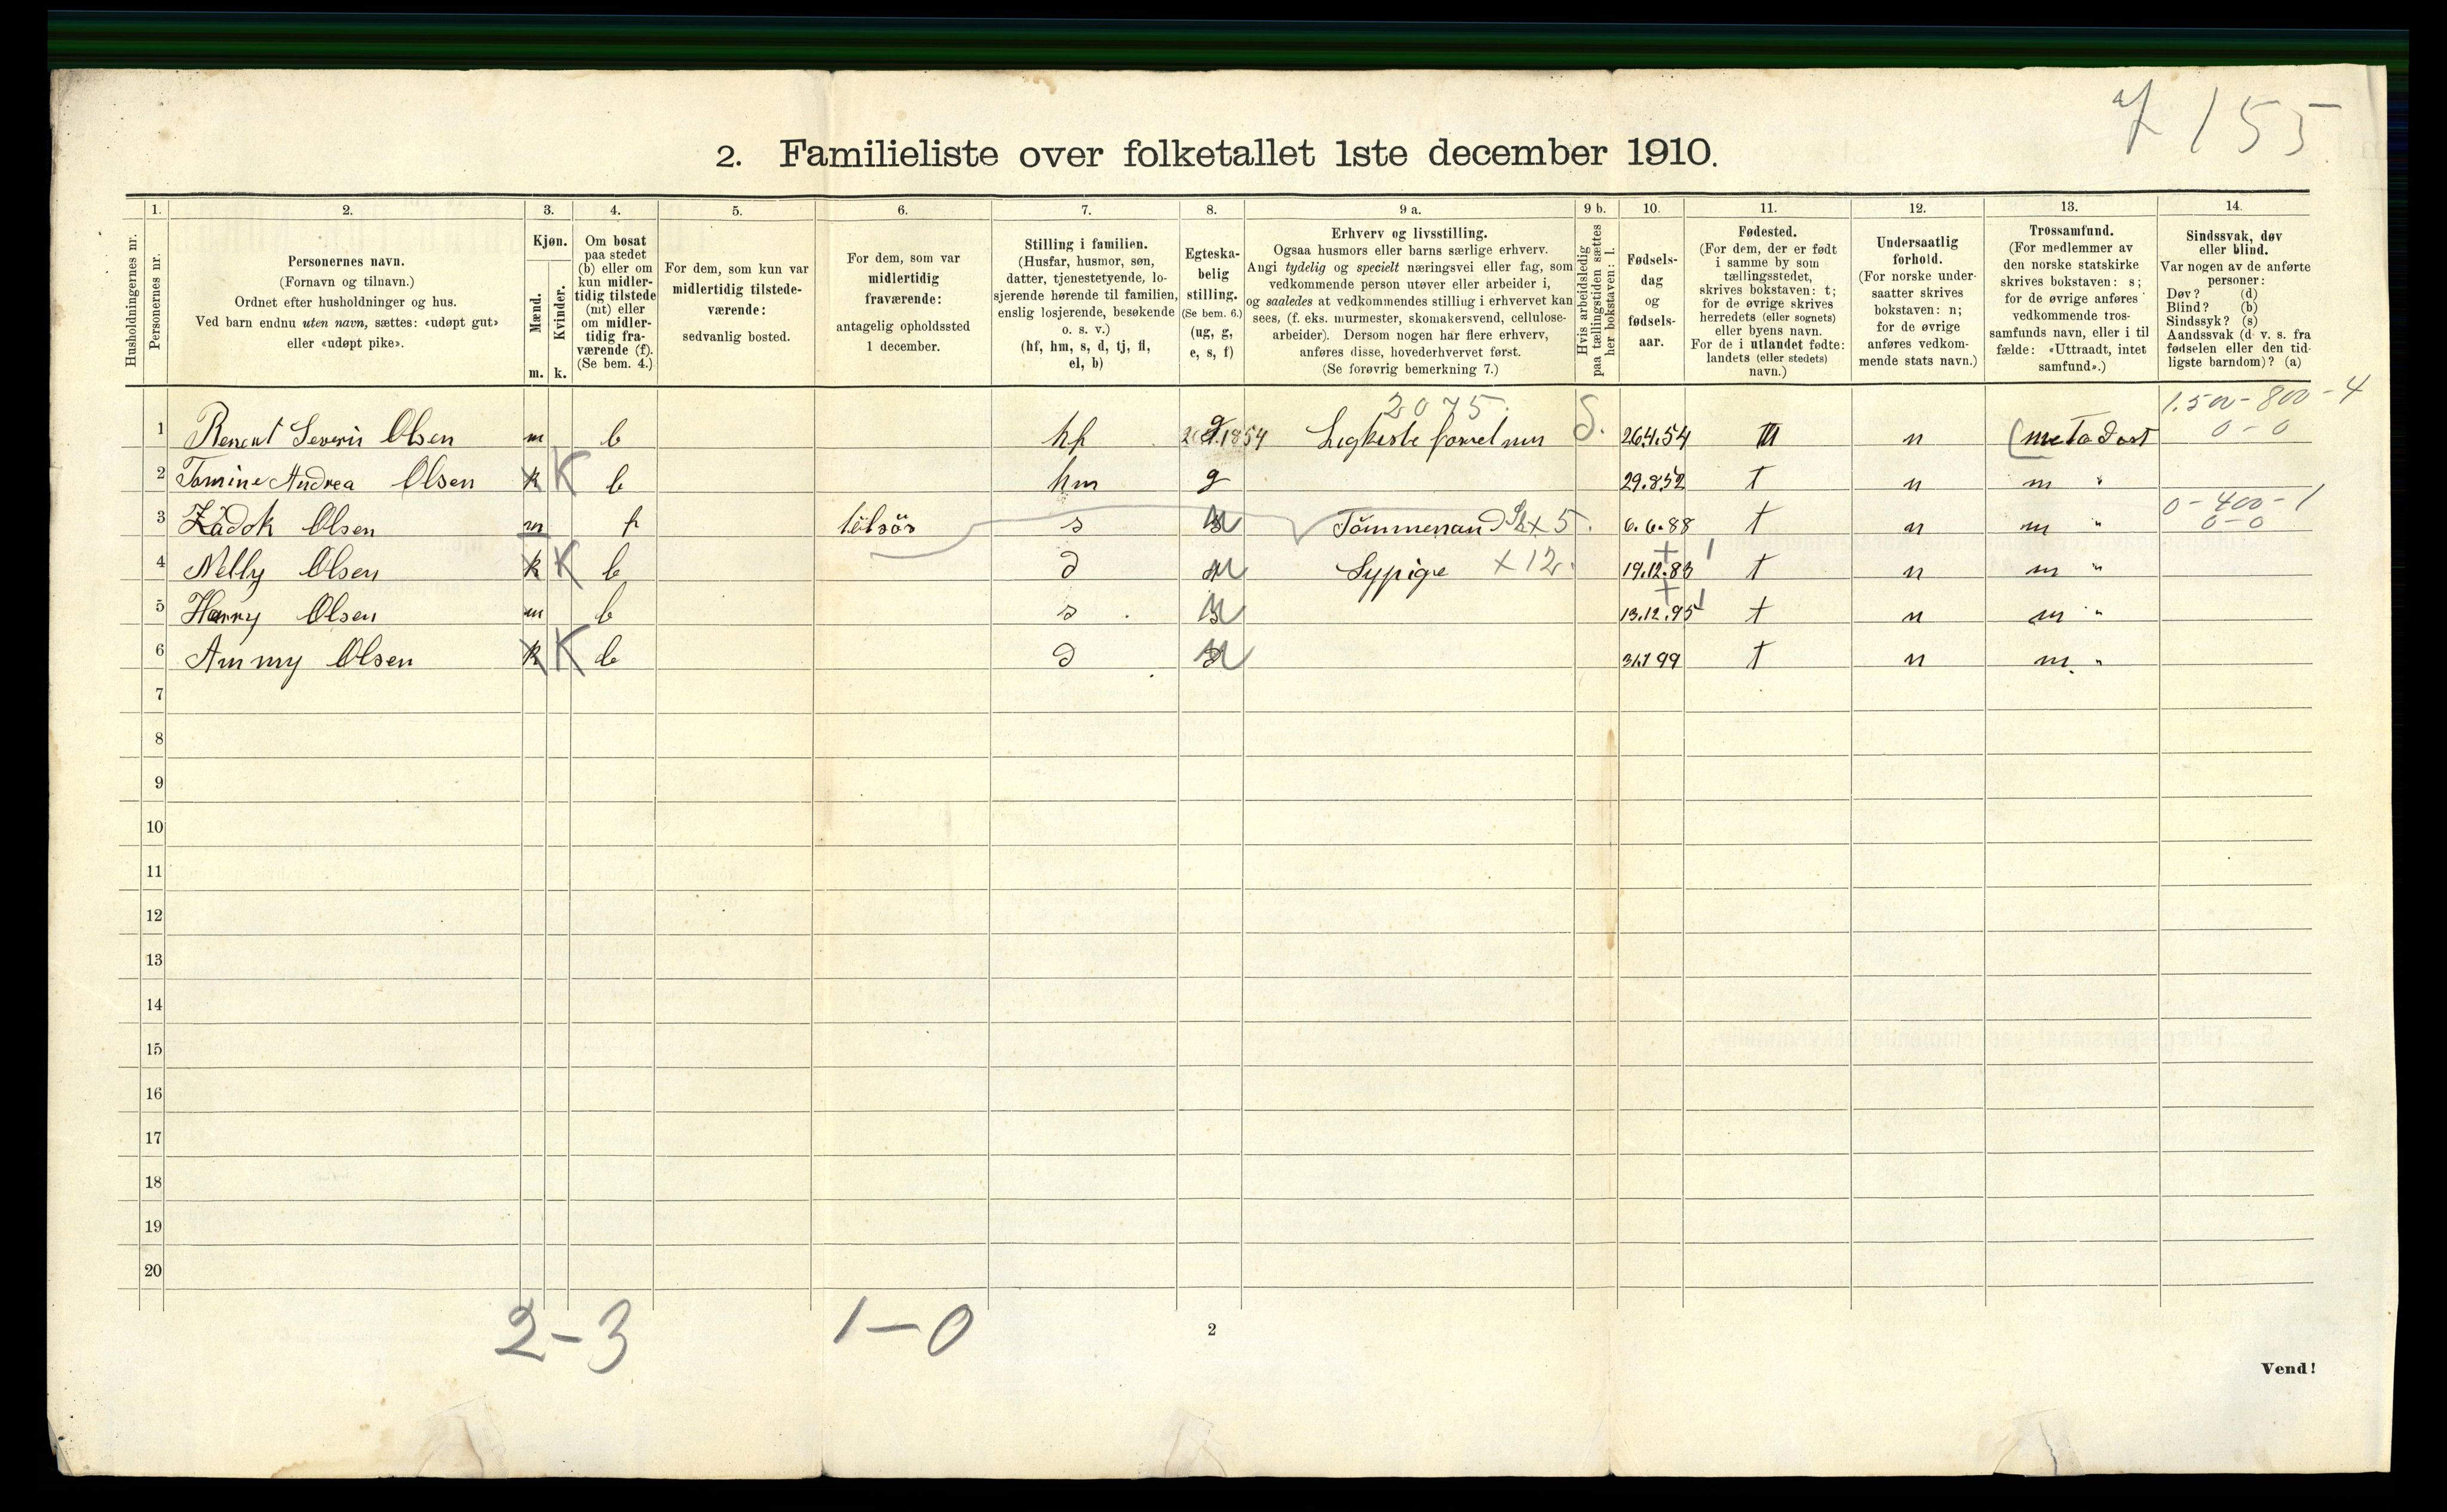 155
2. Familieliste over folketallet 1ste december 1910.
Husholdningernes nr.
1.
Personernes nr.
2.
Personernes navn.
(Fornavn og tilnavn.)
Ordnet efter husholdninger og hus.
Ved barn endnu uten navn, sættes: «udøpt gut»
eller «udøpt pike».
3.
Kjøn.
Mænd.
m.
Kvinder.
k.
4.
Om bosat
paa stedet
(b) eller om
kun midler-
tidig tilstede
(mt) eller
om midler-
tidig fra-
værende (f).
(Se bem. 4.)
5.
For dem, som kun var
midlertidig tilstede-
værende:
sedvanlig bosted.
6.
For dem, som var
midlertidig
fraværende:
antagelig opholdssted
1 december.
7.
Stilling i familien.
(Husfar, husmor, søn,
datter, tjenestetyende, lo-
sjerende hørende til familien,
enslig losjerende, besøkende
o. s. v.)
(hf, hm, s, d, tj, fl,
el, b)
8.
Egteska-
belig
stilling.
(Se bem. 6.)
(ug, g,
e, s, f)
9 a.
Erhverv og livsstilling.
Ogsaa husmors eller barns særlige erhverv.
Angi tydelig og specielt næringsvei eller fag, som
vedkommende person utøver eller arbeider i,
og saaledes at vedkommendes stilling i erhvervet kan
sees, (f. eks. murmester, skomakersvend, cellulose-
arbeider). Dersom nogen har flere erhverv,
anføres disse, hovederhvervet først.
(Se forøvrig bemerkning 7.)
9 b.
Hvis arbeidsledig
paa tællingstiden sættes
her bokstaven: l.
10.
Fødsels-
dag
og
fødsels-
aar.
11.
Fødested.
(For dem, der er født
i samme by som
tællingsstedet,
skrives bokstaven: t;
for de øvrige skrives
herredets (eller sognets)
eller byens navn.
For de i utlandet fødte:
landets (eller stedets)
navn.)
12.
Undersaatlig
forhold.
(For norske under-
saatter skrives
bokstaven: n;
for de øvrige
anføres vedkom-
mende stats navn.)
13.
Trossamfund.
(For medlemmer av
den norske statskirke
skrives bokstaven: s;
for de øvrige anføres
vedkommende tros-
samfunds navn, eller i til
fælde: «Uttraadt, intet
samfund».)
14.
Sindssvak, døv
eller blind.
Var nogen av de anførte
personer:
Døv? (d)
Blind? (b)
Sindssyk? (s)
Aandssvak (d. v. s. fra
fødselen eller den tid-
ligste barndom)? (a)
2075. 1.500 - 800 - 4
1 Severin Olsen m b hf g S. 26.4.54 n 0 - 0
2 Tomine Andrea Olsen k K b hm g 29.8.52 t n m "
0 - 400 - 1
3 Zadok Olsen m f s x 5. 6.6.88 t n m " 0 - 0
4 Nelly Olsen k K b d Sypige x 12. 19.12.83 t n m "
5 Harry Olsen m b s 13.12.95 t n m "
6 Ammy Olsen k K b d 31.1 99 t n m "
7
8
9
10
11
12
13
14
15
16
17
18
19
20
2 - 3 1 - 0
2
Vend!